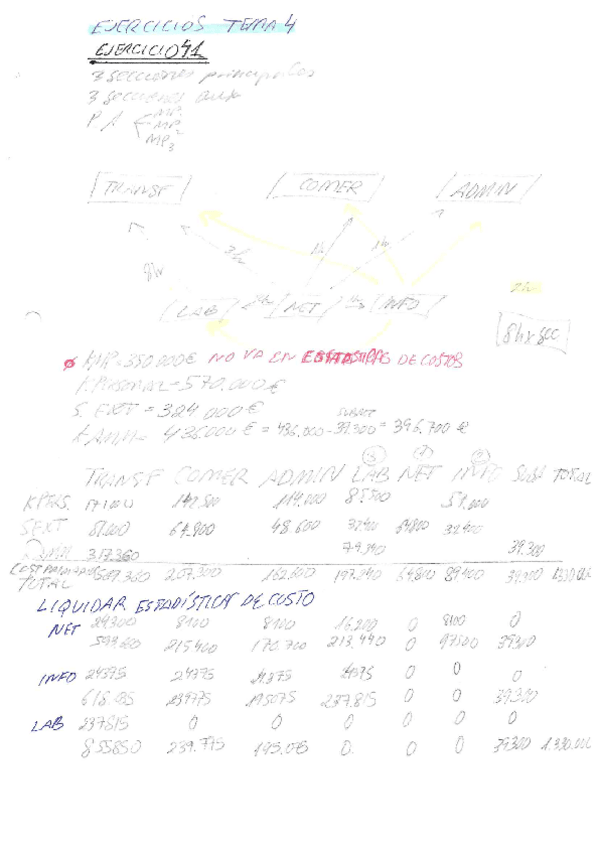 EJERCICIOS TEMA 4
EJERCICIO 4.1
3 secciones principales
3 secciones aux
PA MP1
MP2
MP3
TRANSF COMER ADMIN
8h 3h 1h 1h
LAB 2h NET 1h INFO 2h
8h x sec
KMP=350.000€ NO VA EN ESTADISTICAS DE COSTOS
KPERSONAL=570.000€
S. EXT = 324.000€
SUBACT
KAMM= 436.000€ = 436.000-39.300 = 396.700€
TRANSF COMER ADMIN LAB NET INFO Subact TOTAL
KPERS. 171.000 142.500 114.000 85.500 57.000
SEXT 81.000 64.800 48.600 32400 64800 32.400
KAMM 317.360 79.340 39.300
TOTAL 569.360 207.300 162.600 197.240 64.800 89400 39300
LIQUIDAR ESTADÍSTICA DE COSTO
NET 24300 8100 8100 16.200 0 8100 0
593.660 215400 170.700 213.440 0 97500 39300
INFO 24375 24375 24375 24375 0 0 0
618.035 239775 195075 237.815 0 0 39.300
LAB 237815 0 0 0 0 0 0
855850 239.775 195.075 0 0 0 39300 1.330.000